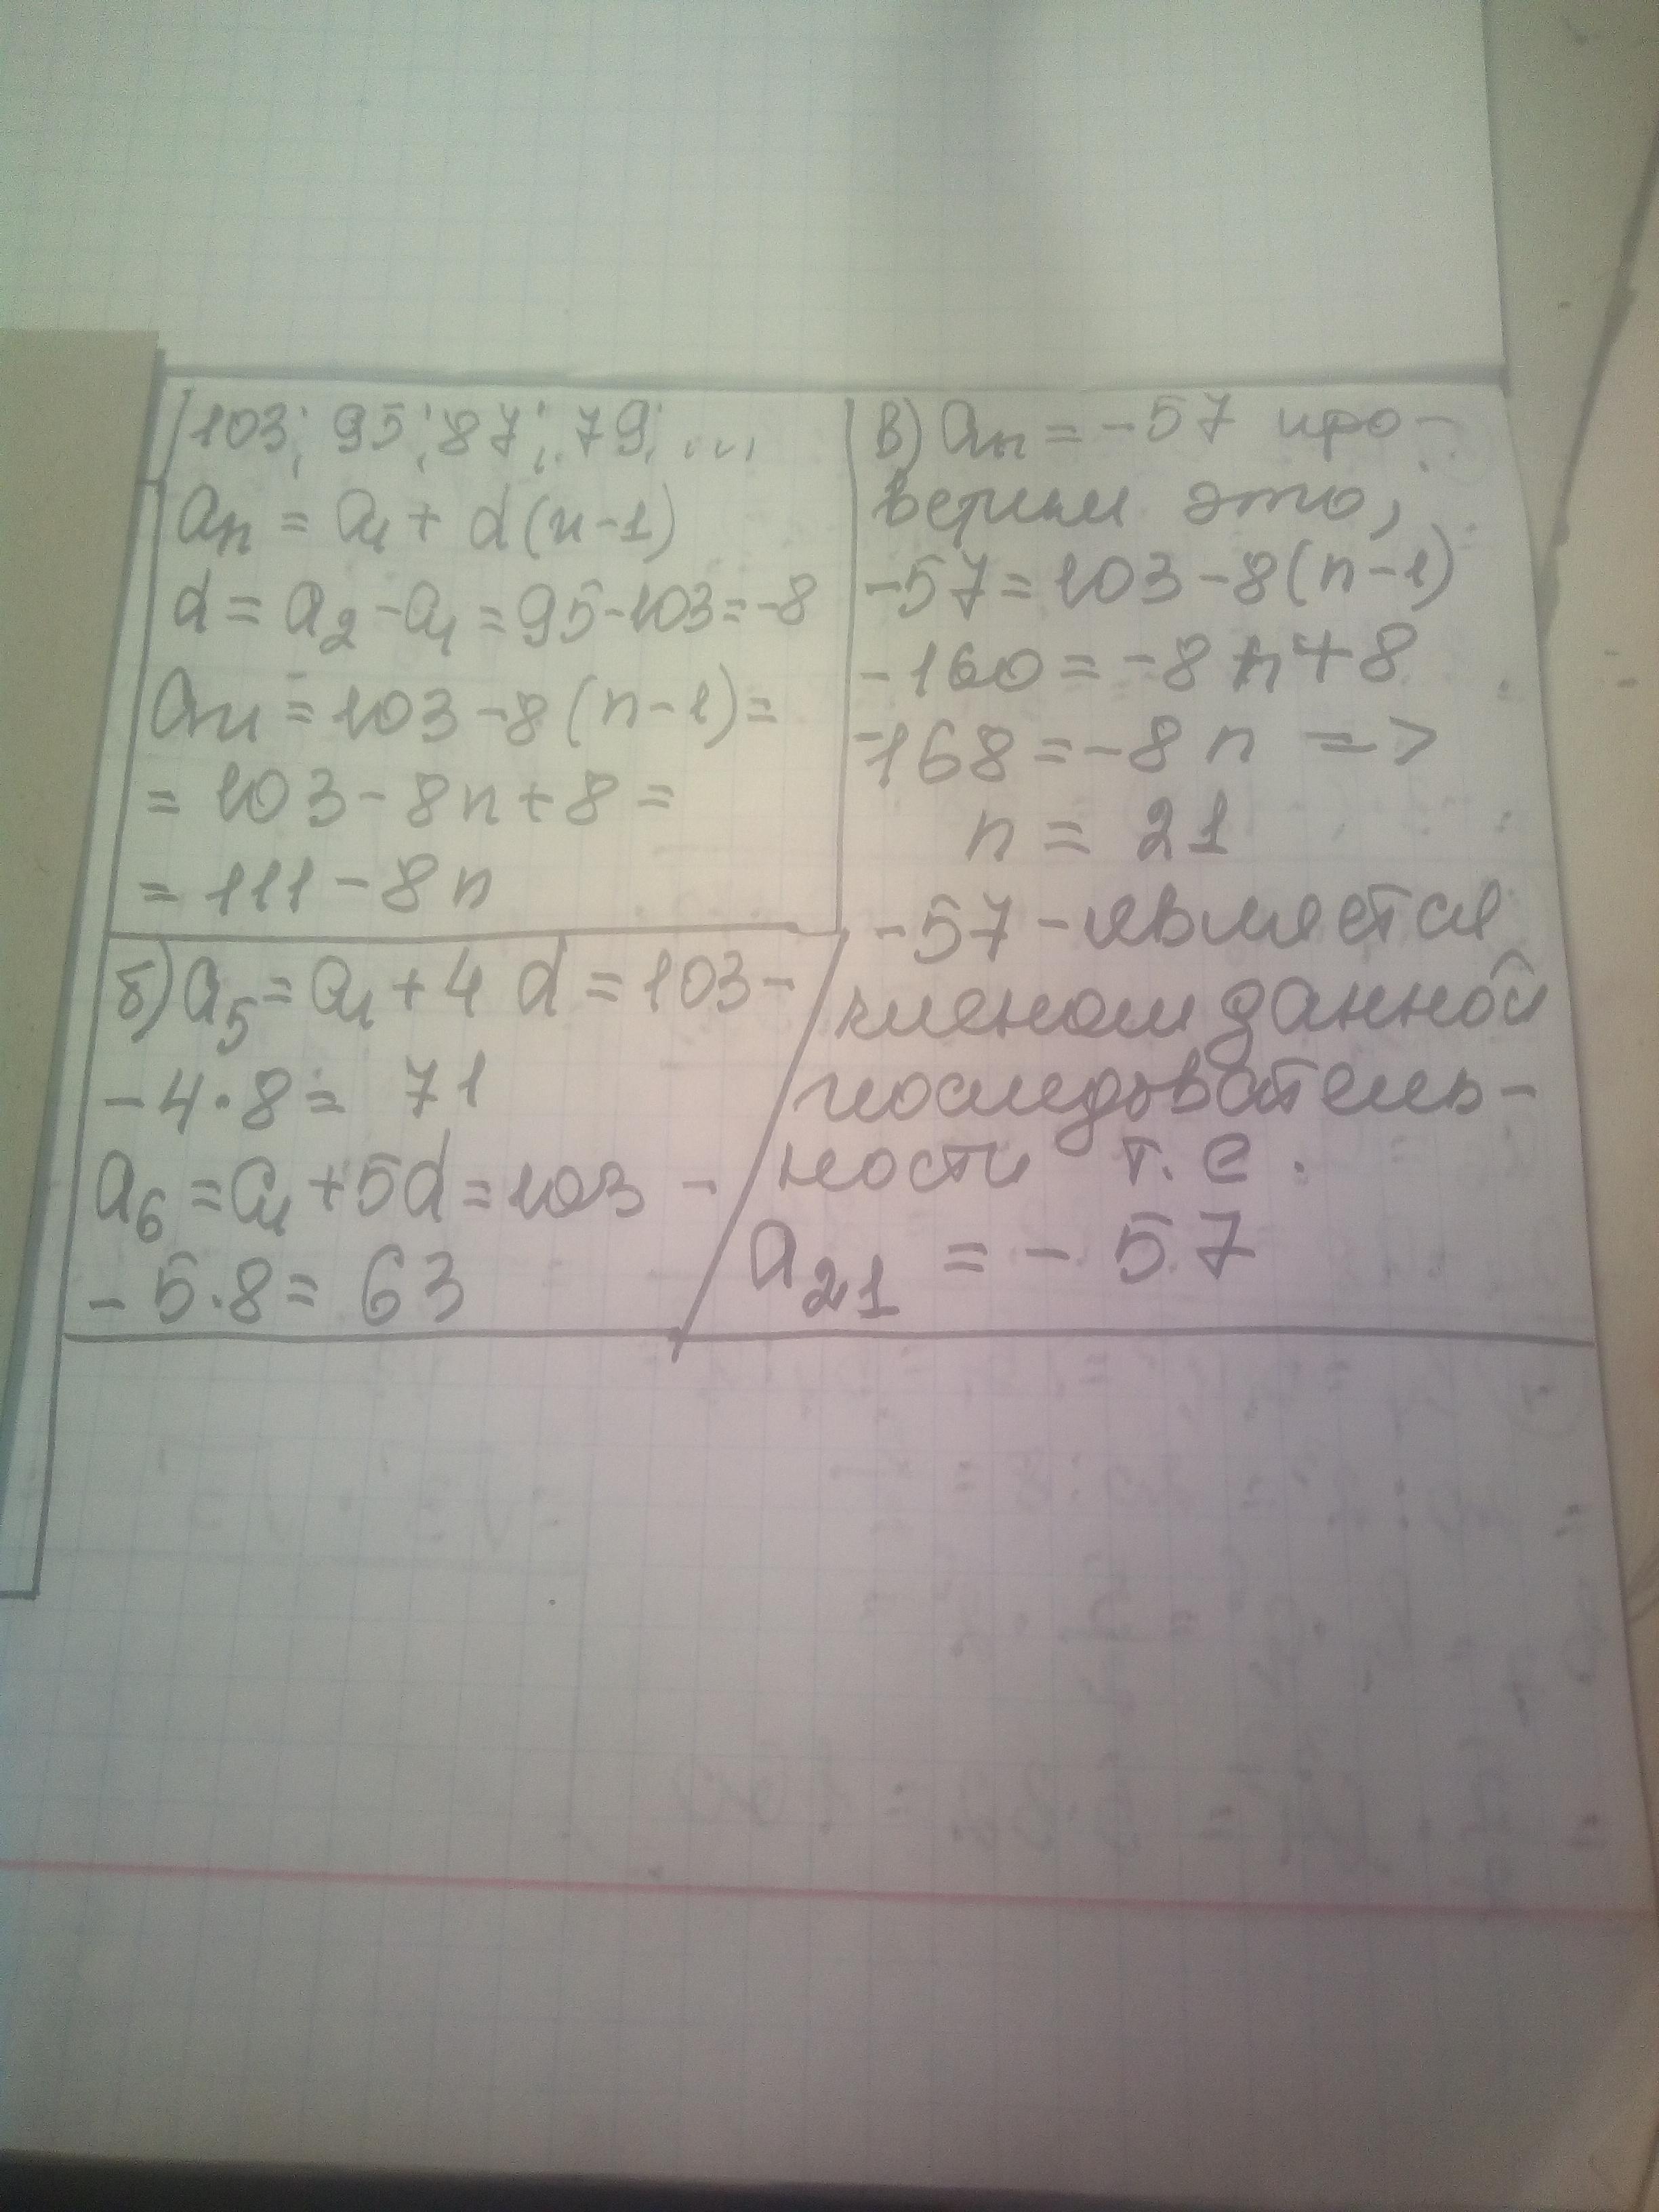 103; 95; 87; 79; ...
aₙ = a₁ + d(n-1)
d = a₂ - a₁ = 95-103 = -8
aₙ = 103 - 8(n-1) =
= 103 - 8n + 8 =
= 111 - 8n
б) a₅ = a₁ + 4d = 103 -
- 4·8 = 71
a₆ = a₁ + 5d = 103 -
- 5·8 = 63
в) aₙ = -57 про-
верим это,
-57 = 103 - 8(n-1)
-160 = -8n + 8
-168 = -8n =>
n = 21
-57 - является
членом данной
последователь-
ности т.е.
a₂₁ = -57